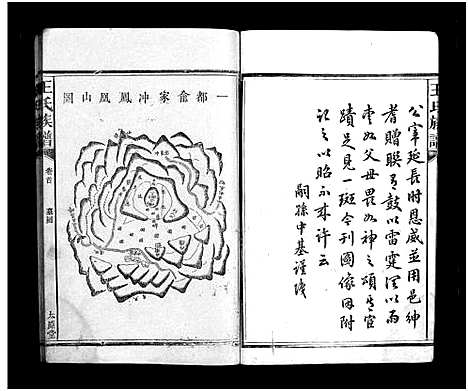 王氏族譜
公宰延長時恩威並用邑紳
者贈聯有鼓以雷霆潤以雨
愛如父母畏如神之頌其官
蹟足見一斑今刊圖像因附
記之以昭示來許云
嗣孫中基謹識
一都俞家冲鳳凰山圖
王氏族譜
卷首
墓圖
太原堂